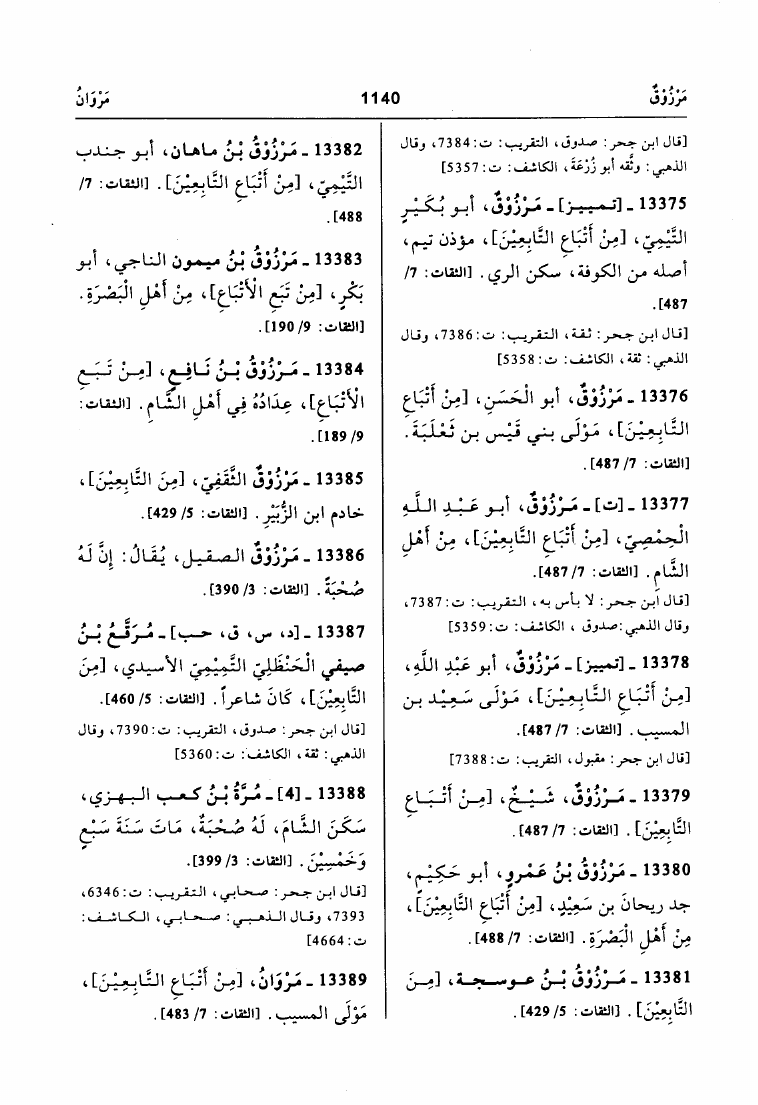 مَرْزُوْقٌ 1140 مَرْوَانُ
[قال ابن حجر: صدوق، التقريب: ت:7384، وقال
الذهبي: وثَّقه أبو زُرْعَة، الكاشف: ت:5357]
13375 ـ [تمييز] ـ مَرْزُوْقٌ، أبو بُكَيْرٍ
التَّيْمِيّ، [مِنْ أَتْبَاعِ التَّابِعِيْنَ]، مؤذن تيم،
أصله من الكوفة، سكن الري. [الثقات: 7/
487].
[قال ابن حجر: ثقة، التقريب: ت:7386، وقال
الذهبي: ثقة، الكاشف: ت:5358]
13376 ـ مَرْزُوْقٌ، أبو الْحَسَنِ، [مِنْ أَتْبَاعِ
التَّابِعِيْنَ]، مَوْلَى بني قَيْسِ بن ثَعْلَبَةَ.
[الثقات: 7/ 487].
13377 ـ [ت] ـ مَرْزُوْقٌ، أبو عَبْدِ اللَّهِ
الْحِمْصِيّ، [مِنْ أَتْبَاعِ التَّابِعِيْنَ]، مِنْ أَهْلِ
الشَّامِ. [الثقات: 7/ 487].
[قال ابن حجر: لا بأس به، التقريب: ت:7387،
وقال الذهبي:صدوق ، الكاشف: ت:5359]
13378 ـ [تمييز] ـ مَرْزُوْقٌ، أبو عَبْدِ اللَّهِ،
[مِنْ أَتْبَاعِ التَّابِعِيْنَ]، مَوْلَى سَعِيْد بن
المسيب. [الثقات: 7/ 487].
[قال ابن حجر: مقبول، التقريب: ت:7388]
13379 ـ مَرْزُوْقٌ، شَيْخٌ، [مِنْ أَتْبَاعِ
التَّابِعِيْنَ]. [الثقات: 7/ 487].
13380 ـ مَرْزُوْقُ بْنُ عَمْرٍو، أبو حَكِيْمٍ،
جد ريحان بن سَعِيْدٍ، [مِنْ أَتْبَاعِ التَّابِعِيْنَ]،
مِنْ أَهْلِ الْبَصْرَةِ. [الثقات: 7/ 488].
13381 ـ مَرْزُوْقُ بْنُ عوسجة، [مِنَ
التَّابِعِيْنَ]. [الثقات: 5/ 429].
13382 ـ مَرْزُوْقُ بْنُ ماهان، أبو جندب
التَّيْمِيّ، [مِنْ أَتْبَاعِ التَّابِعِيْنَ]. [الثقات: 7/
488].
13383 ـ مَرْزُوْقُ بْنُ ميمون الناجي، أبو
بَكْرٍ، [مِنْ تَبَعِ الأَتْبَاعِ]، مِنْ أَهْلِ الْبَصْرَةِ.
[الثقات: 9/ 190].
13384 ـ مَرْزُوْقُ بْنُ نَافِعٍ، [مِنْ تَبَعِ
الأَتْبَاعِ]، عِدَادُهُ فِي أَهْلِ الشَّامِ. [الثقات:
9/ 189].
13385 ـ مَرْزُوْقٌ الثَّقَفِيّ، [مِنَ التَّابِعِيْنَ]،
خادم ابن الزُّبَيْرِ. [الثقات: 5/ 429].
13386 ـ مَرْزُوْقٌ الصقيل، يُقَالُ: إِنَّ لَهُ
صُحْبَةٌ. [الثقات: 3/ 390].
13387 ـ [د، س، ق، حب] ـ مُرَقَّعُ بْنُ
صيفي الْحَنْظَلِيّ التَّمِيْمِيّ الأسيدي، [مِنَ
التَّابِعِيْنَ]، كَانَ شاعراً. [الثقات: 5/ 460].
[قال ابن حجر: صدوق، التقريب: ت:7390، وقال
الذهبي: ثقة، الكاشف: ت:5360]
13388 ـ [4] ـ مُرَّةُ بْنُ كعب البهزي،
سَكَنَ الشَّامَ، لَهُ صُحْبَةٌ، مَاتَ سَنَةَ سَبْعٍ
وَخَمْسِيْنَ. [الثقات: 3/ 399].
[قال ابن حجر: صحابي، التقريب: ت:6346،
7393، وقال الذهبي: صحابي، الكاشف:
ت:4664]
13389 ـ مَرْوَانُ، [مِنْ أَتْبَاعِ التَّابِعِيْنَ]،
مَوْلَى المسيب. [الثقات: 7/ 483].